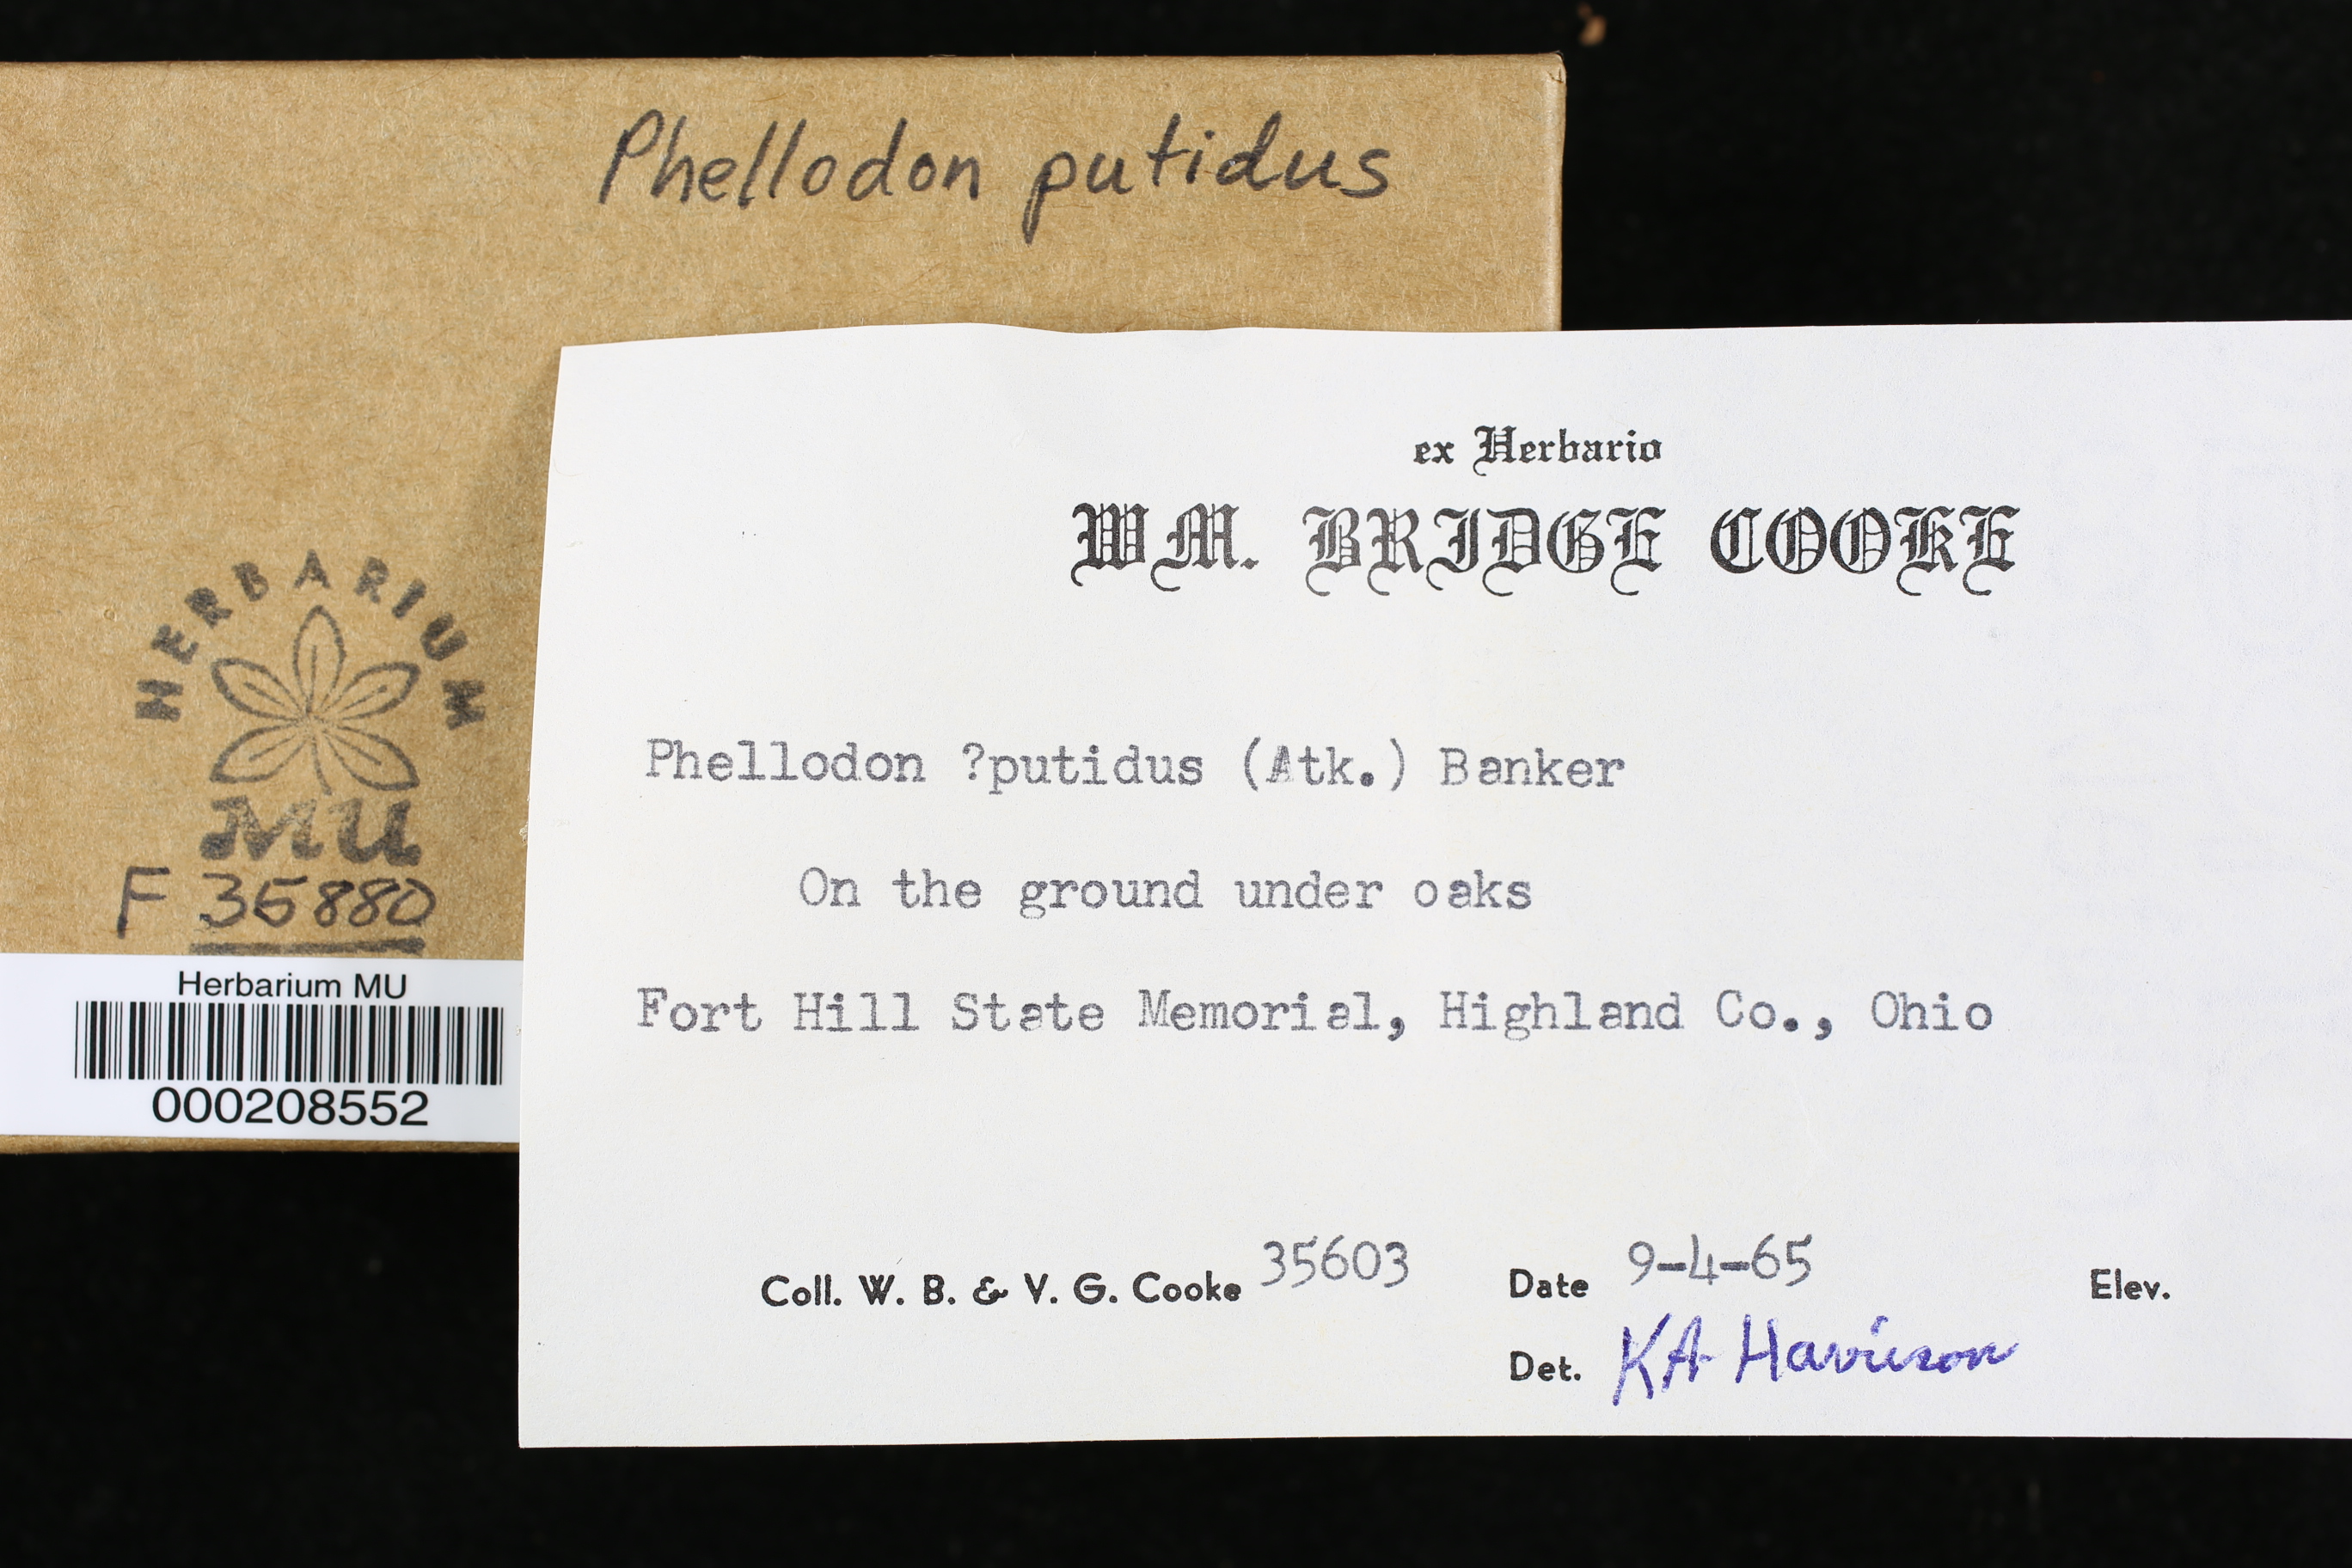 Phellodon putidus
HERBARIUM
MU
F 35880
Herbarium MU
000208552
ex Herbario
WM. BRIDGE COOKE
Phellodon ?putidus (Atk.) Banker
On the ground under oaks
Fort Hill State Memorial, Highland Co., Ohio
Coll. W. B. & V. G. Cooke 35603 Date 9-4-65 Elev.
Det. KA Harrison